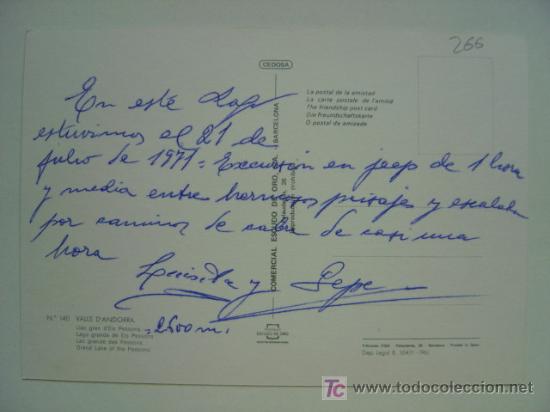 266
CEDOSA
La postal de la amistad
La carte postale de l'amitié
The friendship post card
Die freundschaftskarte
O postal da amizade
En este Lago
estuvimos el 21 de
julio de 1971 = Excursión en jeep de 1 hora
y media entre hermosos paisajes y escalada
por caminos de cabra de casi una
hora
Luisita y Pepe
COMERCIAL ESCUDO DE ORO, S.A.
BARCELONA
N.º 140 VALLS D'ANDORRA.
Llac gran d'Els Pessons
Lago grande de Els Pessons
Lac grande des Pessons
Grand Lake of the Pessons
2600 m.
ESCUDO DE ORO
Dep. Legal B.
todocoleccion
www.todocoleccion.net